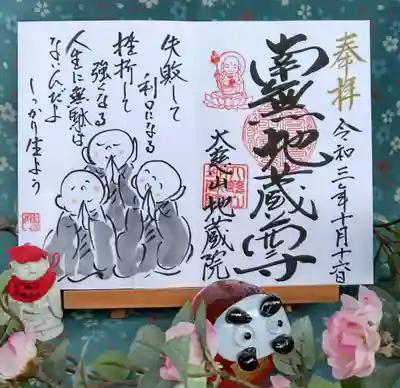 奉拝
令和三年十月十六日
南無地蔵尊
山地蔵院
失敗して
利口になる
挫折して
強くなる
人生に無駄は
ないんだよ
しっかり生よう